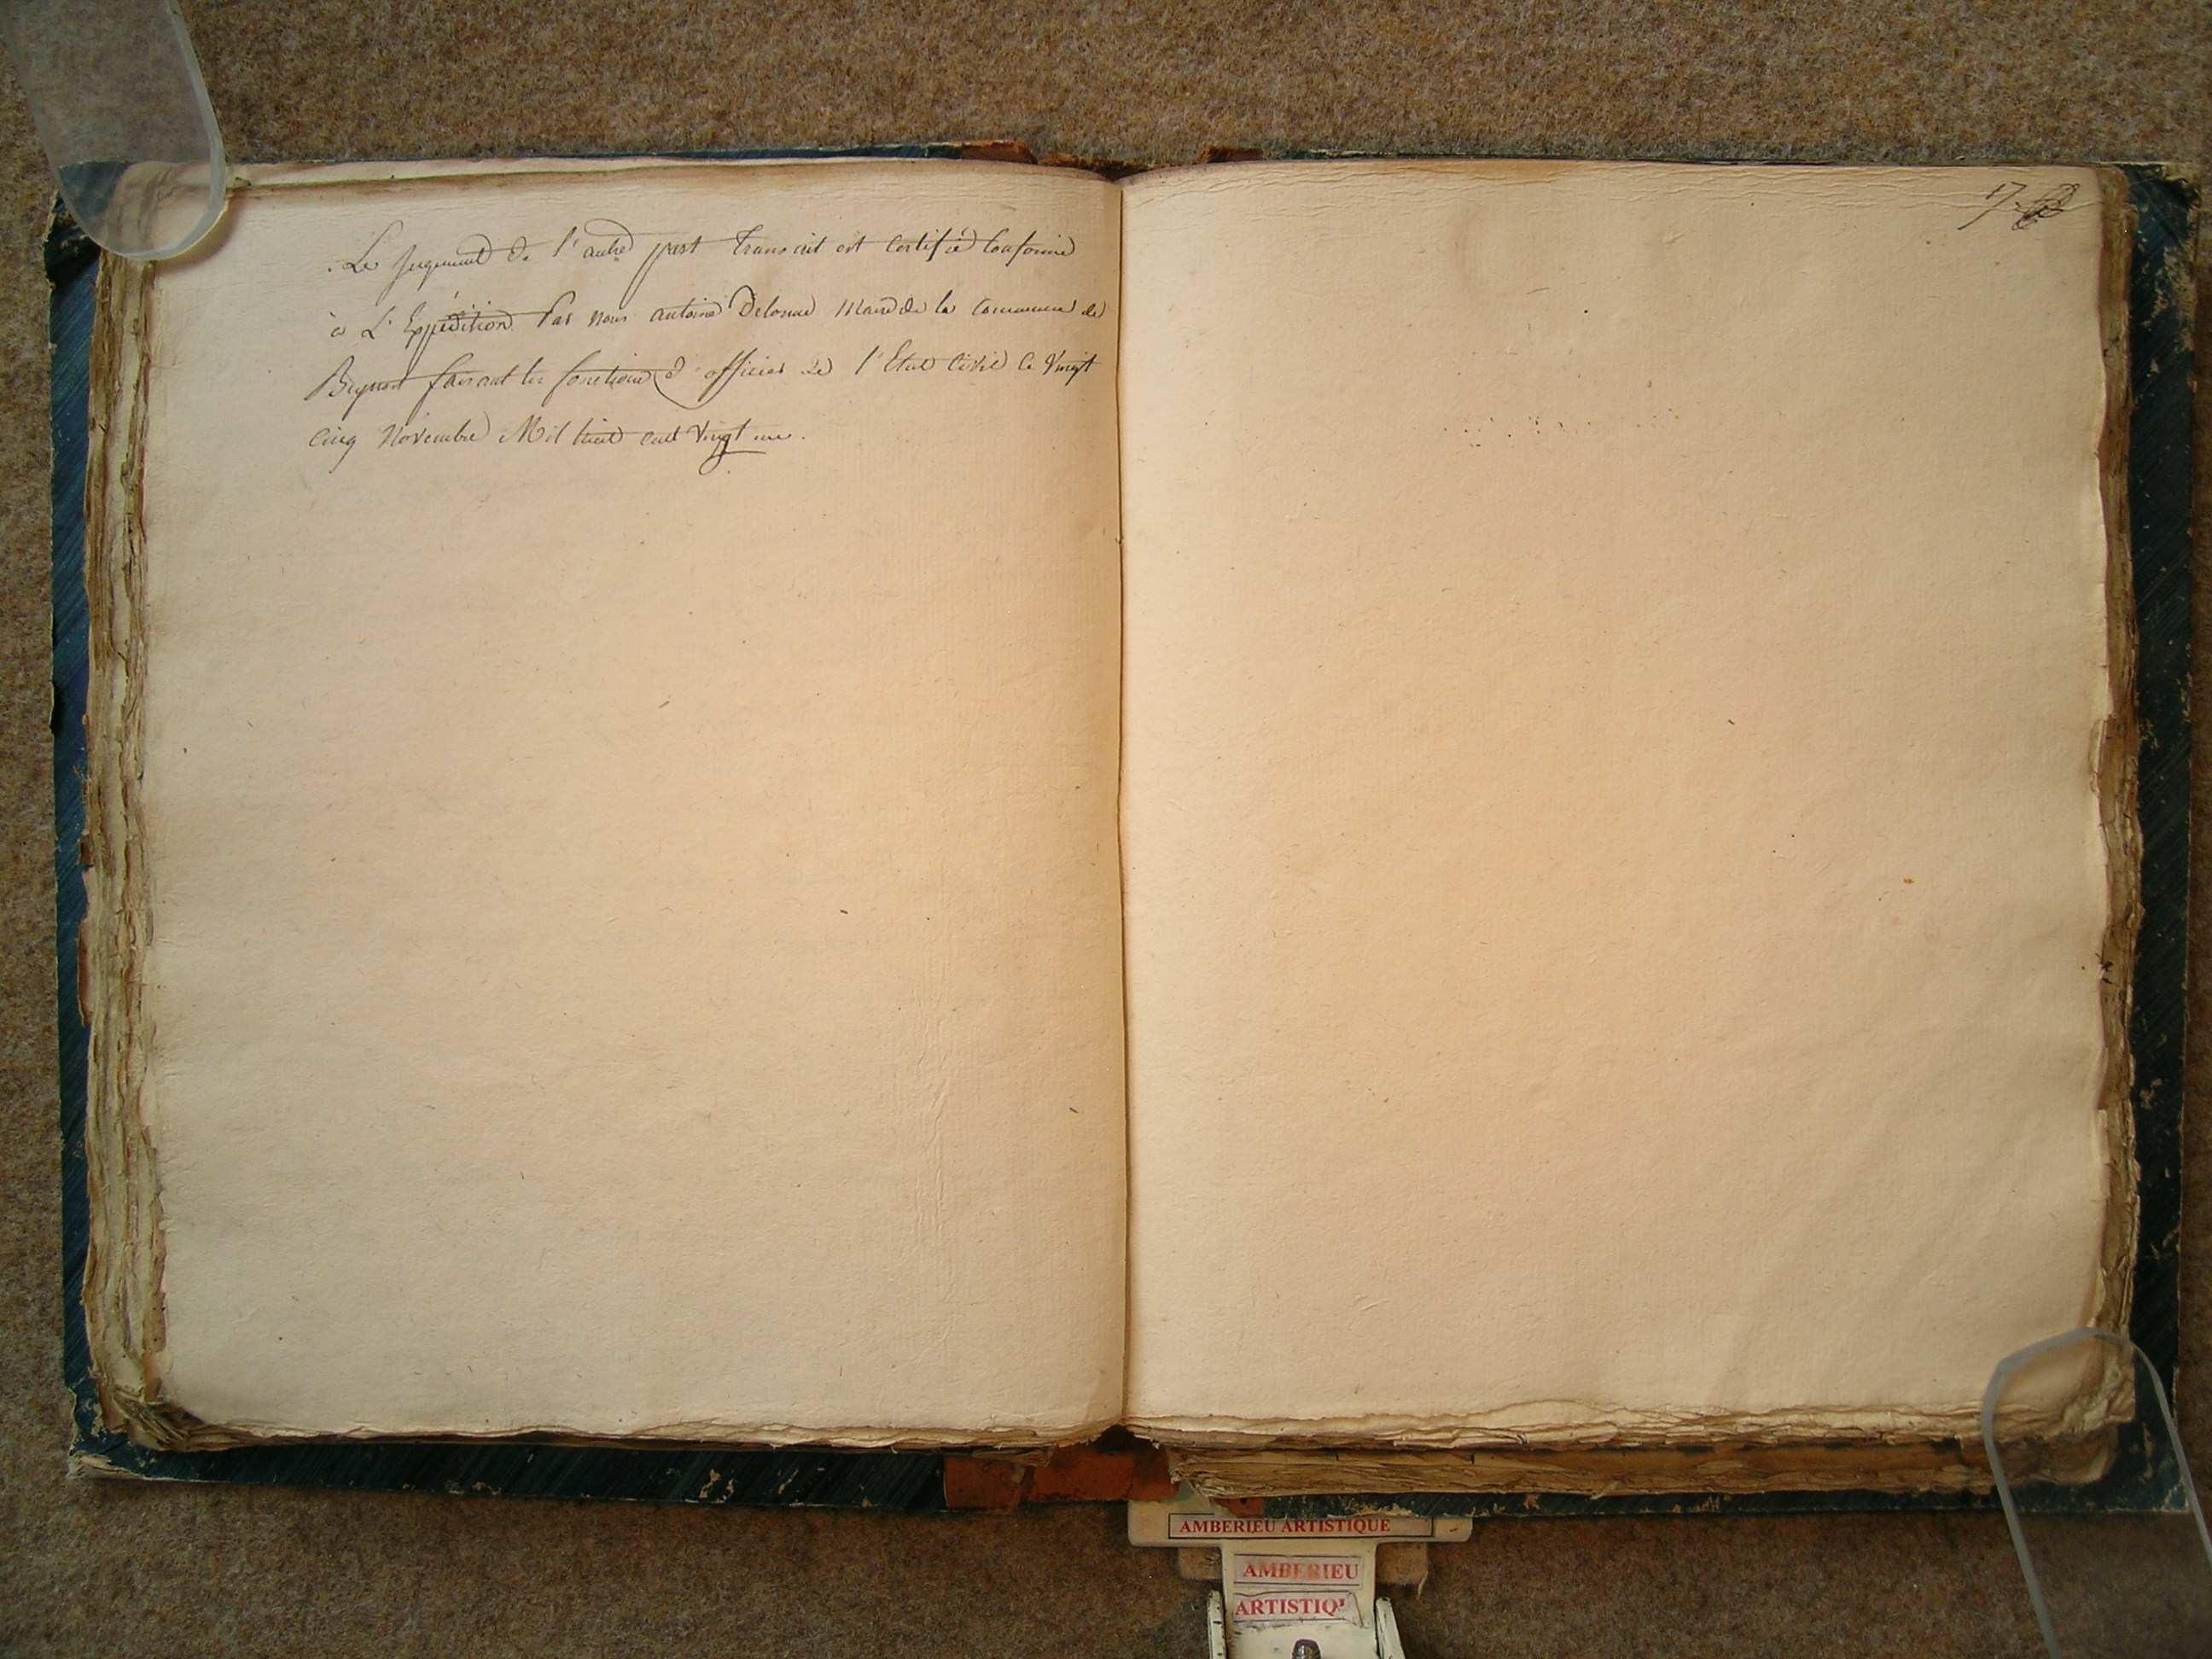 Le jugement de l'autre part transcrit est certifié conforme
à L'Expédition Par nous antoine Delorme Maire de la commune de
faisant les fonctions d'officier de l'Etat Civil le Vingt
cinq Novembre Mil huit cent Vingt un.
17.
AMBERIEU ARTISTIQUE
AMBERIEU
ARTISTIQU